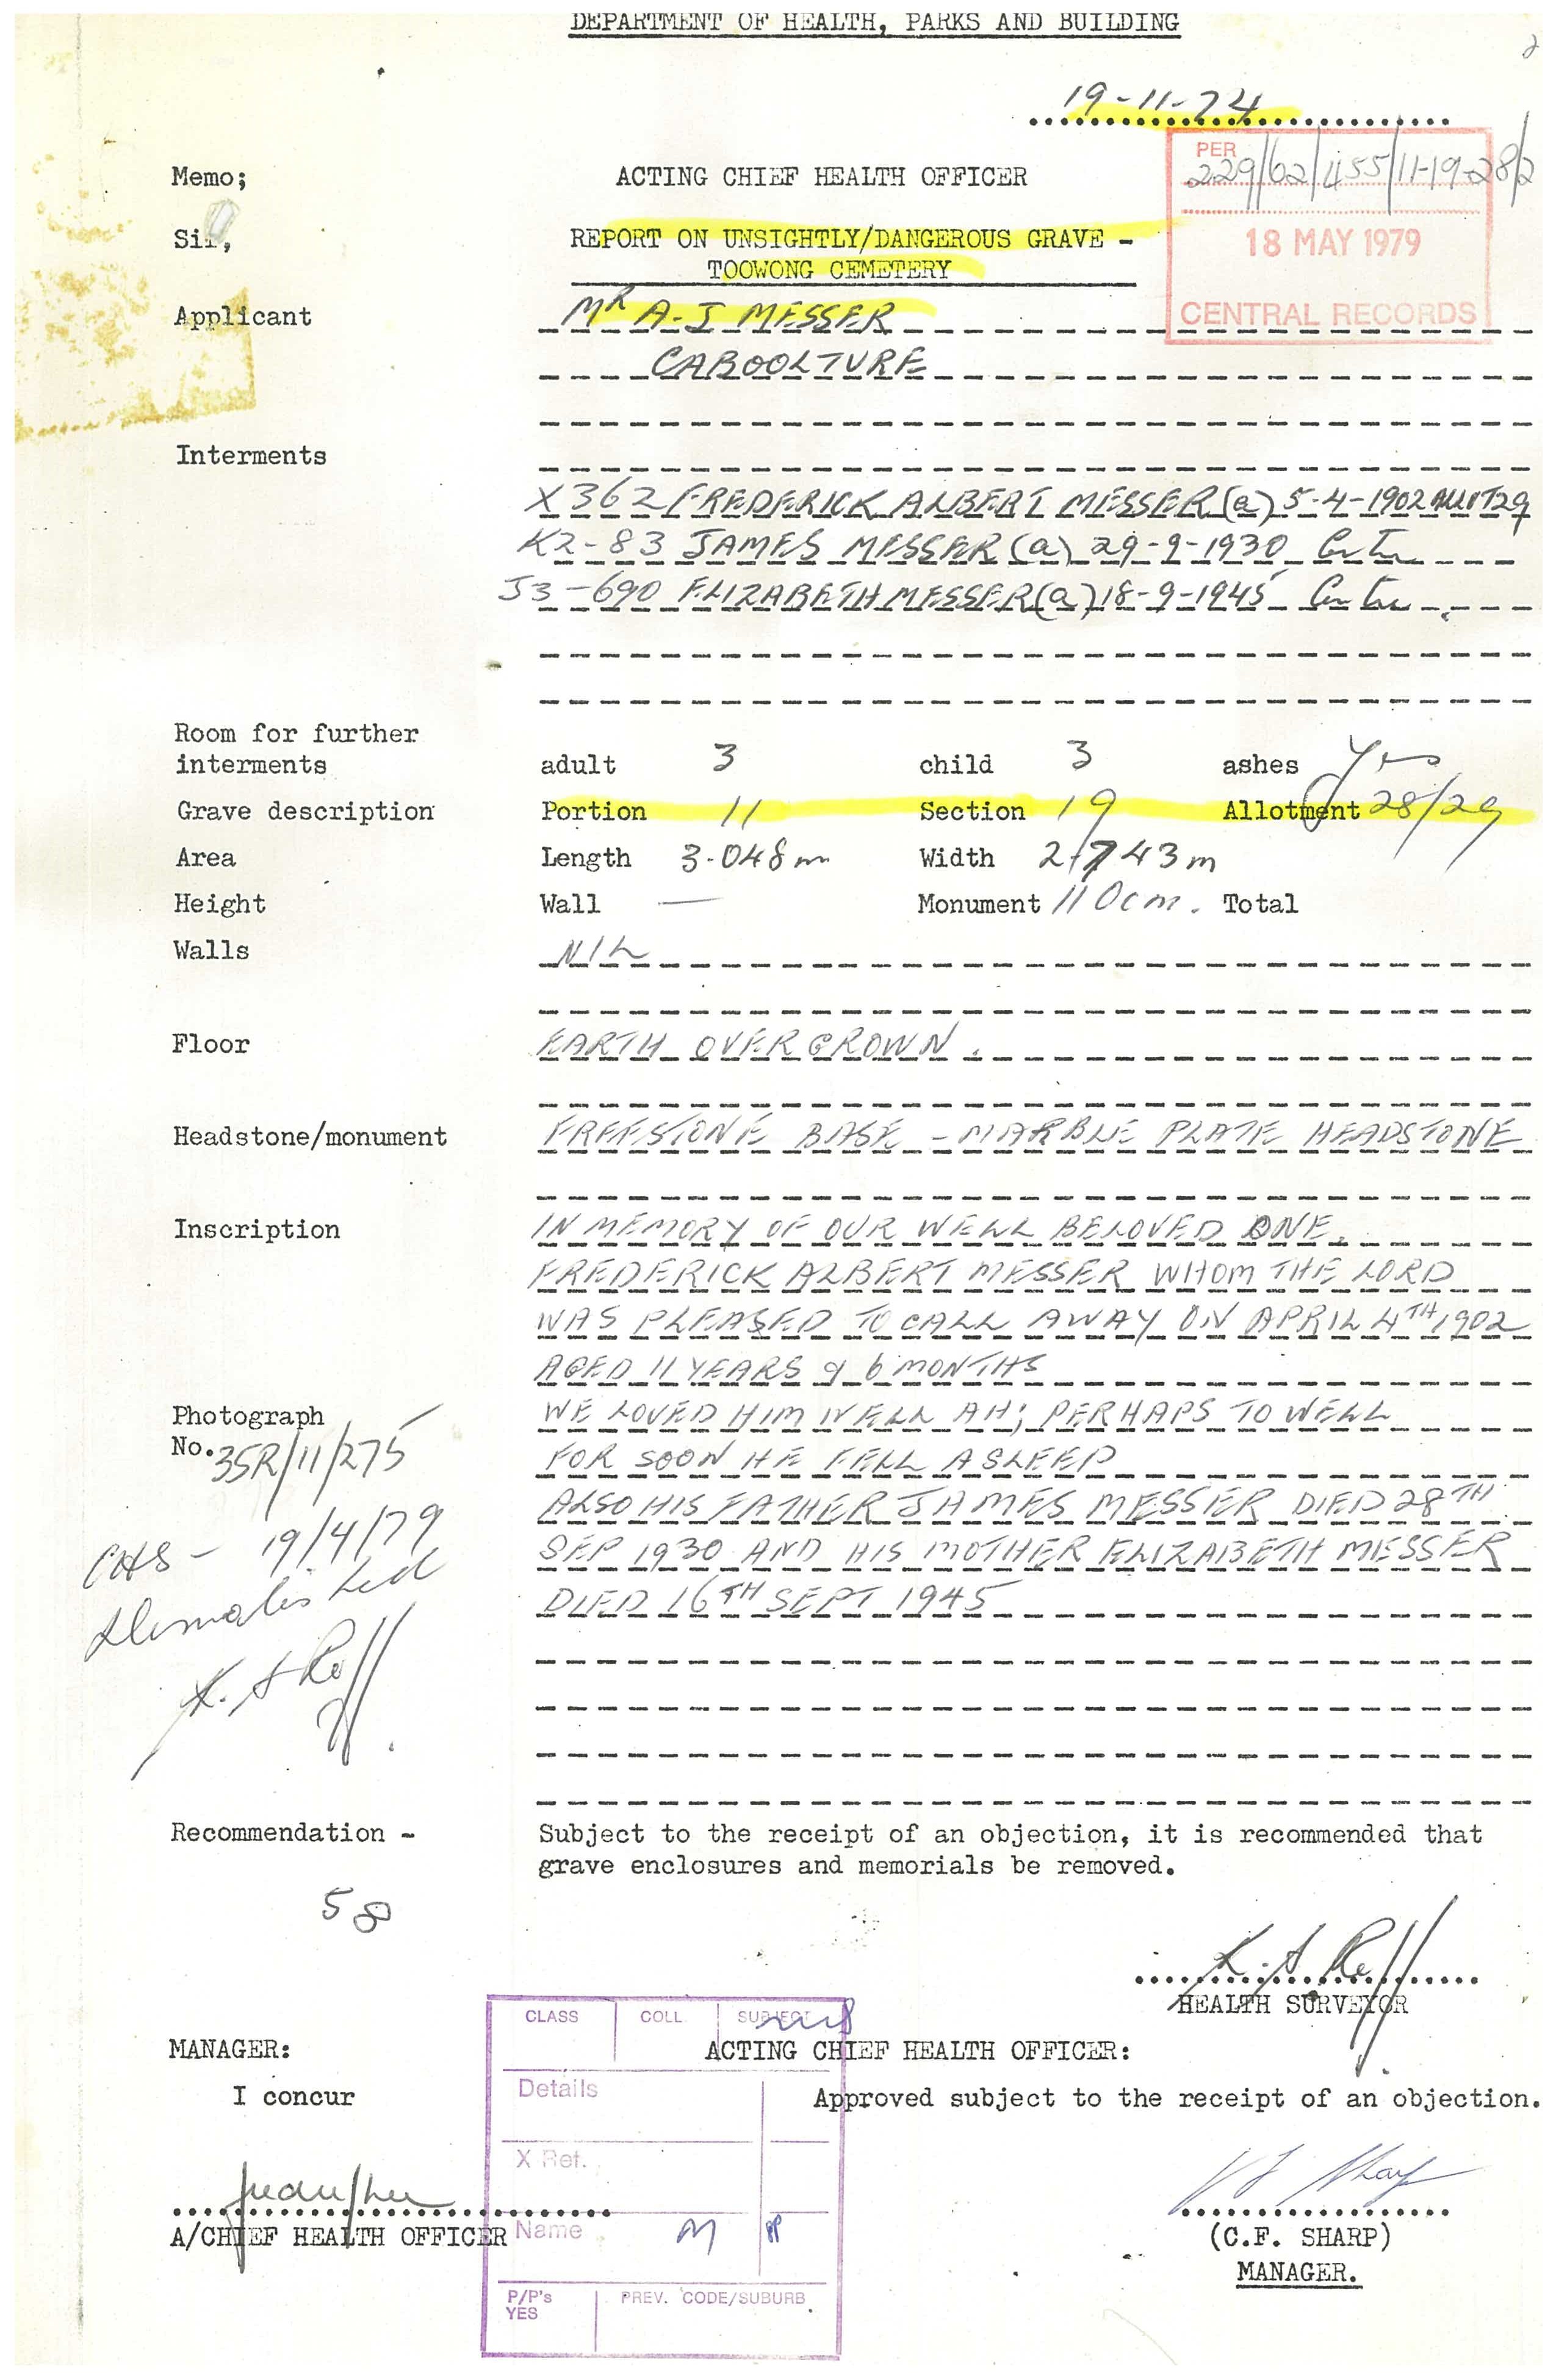 DEPARTMENT OF HEALTH, PARKS AND BUILDING
2
19-11-74
PER
229/62/455/11-19-28/2
18 MAY 1979
CENTRAL RECORDS
Memo; ACTING CHIEF HEALTH OFFICER
Sir, REPORT ON UNSIGHTLY/DANGEROUS GRAVE -
TOOWONG CEMETERY
Applicant MR A-J MESSER
CABOOLTURE
Interments
X362 FREDERICK ALBERT MESSER (a) 5-4-1902 ALLOT 29
K2-83 JAMES MESSER (a) 29-9-1930 Centre
J3-690 ELIZABETH MESSER (a) 18-9-1945 Centre.
Room for further
interments adult 3 child 3 ashes Yes
Grave description Portion 11 Section 19 Allotment 28/29
Area Length 3.048m Width 2.743m
Height Wall — Monument 110cm. Total
Walls NIL
Floor EARTH OVERGROWN.
Headstone/monument FREESTONE BASE - MARBLE PLATE HEADSTONE
Inscription IN MEMORY OF OUR WELL BELOVED ONE.
FREDERICK ALBERT MESSER WHOM THE LORD
WAS PLEASED TO CALL AWAY ON APRIL 4TH 1902
AGED 11 YEARS & 6 MONTHS
Photograph WE LOVED HIM WELL AH; PERHAPS TO WELL
No. 35R/11/275 FOR SOON HE FELL ASLEEP
ALSO HIS FATHER JAMES MESSER DIED 28TH
SEP 1930 AND HIS MOTHER ELIZABETH MESSER
DIED 16TH SEPT 1945
CHS - 19/4/79
K. A Roff
Recommendation - Subject to the receipt of an objection, it is recommended that
grave enclosures and memorials be removed.
58
K. A. Roff
HEALTH SURVEYOR
CLASS COLL SUBJECT
MANAGER: ACTING CHIEF HEALTH OFFICER:
Details
I concur Approved subject to the receipt of an objection.
X Ref.
A/CHIEF HEALTH OFFICER
Name M
(C.F. SHARP)
MANAGER.
P/P's PREV. CODE/SUBURB
YES